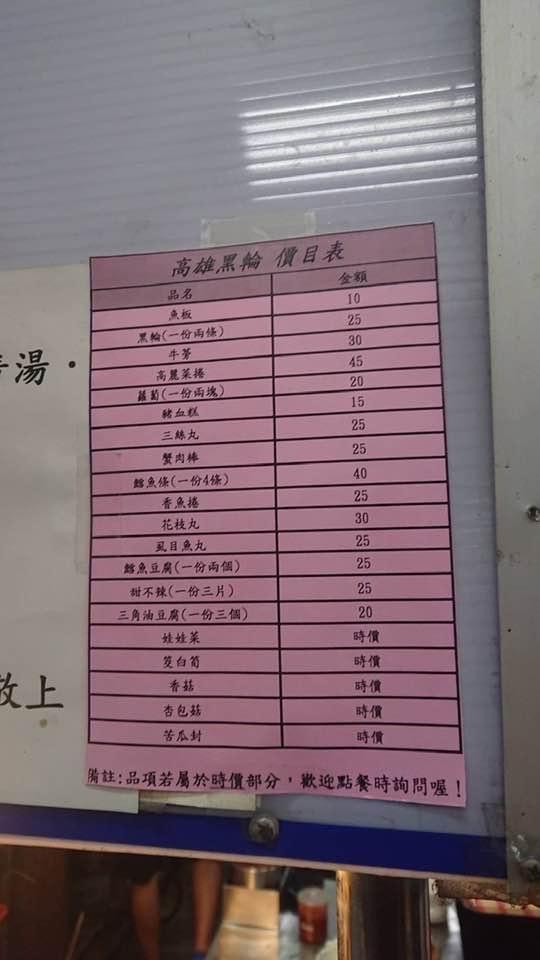 高雄黑輪 價目表
品名 金額
魚板 10
黑輪(一份兩條) 25
牛蒡 30
高麗菜捲 45
蘿蔔(一份兩塊) 20
豬血糕 15
三絲丸 25
蟹肉棒 25
鱈魚條(一份4條) 40
香魚捲 25
花枝丸 30
虱目魚丸 25
鱈魚豆腐(一份兩個) 25
甜不辣(一份三片) 25
三角油豆腐(一份三個) 20
娃娃菜 時價
筊白筍 時價
香菇 時價
杏包菇 時價
苦瓜封 時價
備註:品項若屬於時價部分，歡迎點餐時詢問喔！
湯．
上